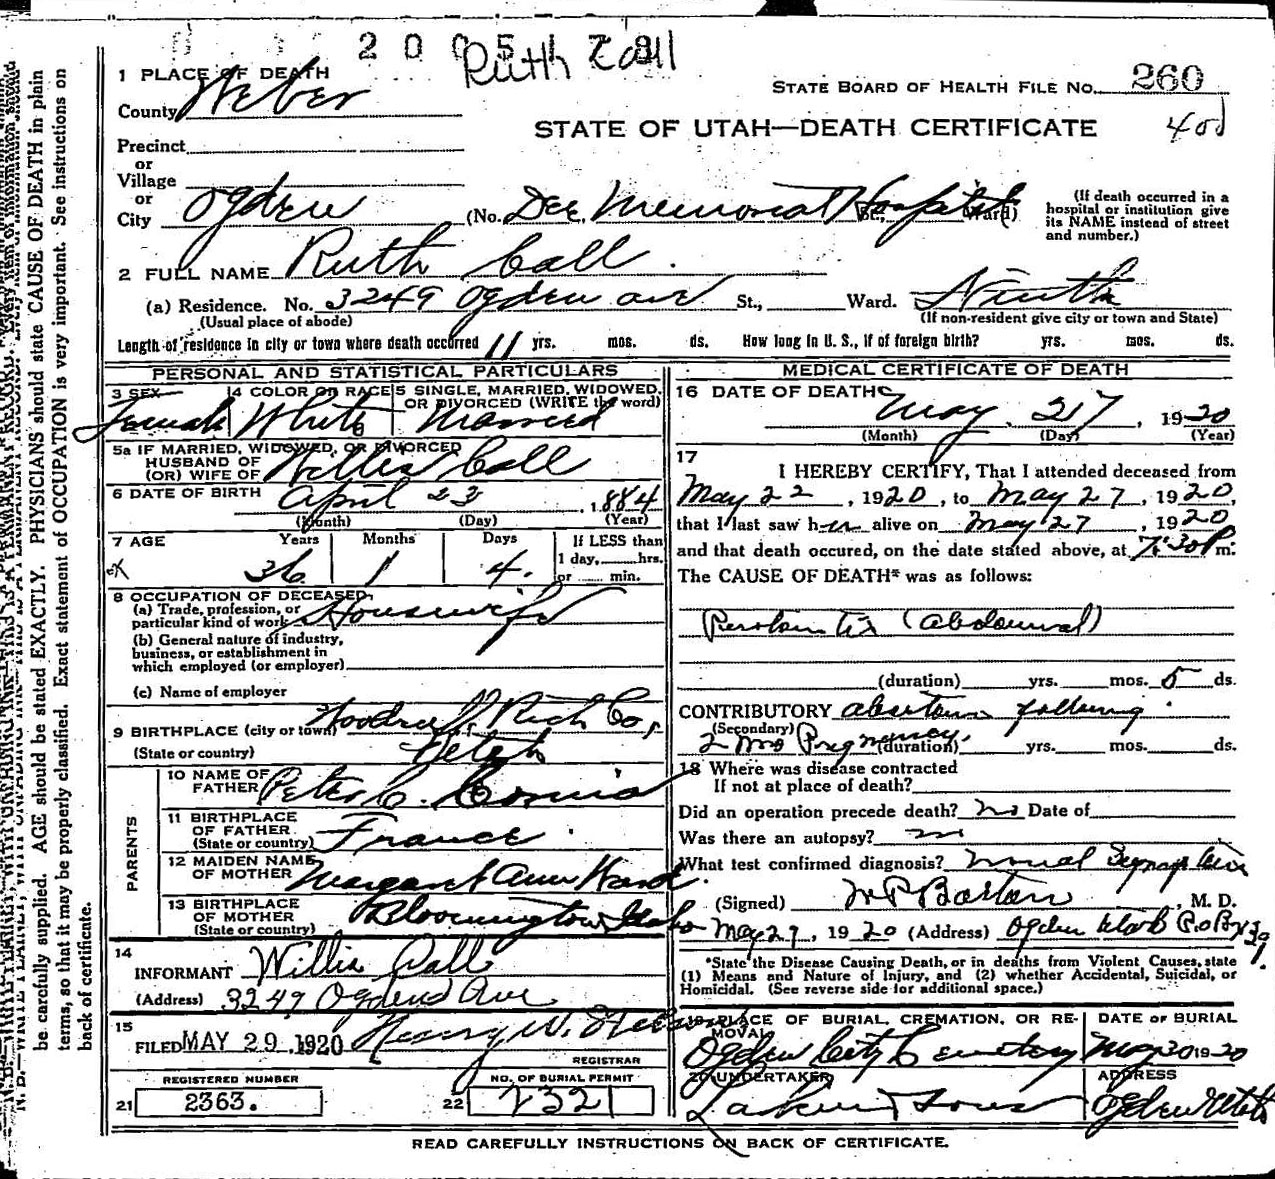 2005178
Ruth Call
1 PLACE OF DEATH
County Weber
STATE BOARD OF HEALTH FILE No. 260
STATE OF UTAH—DEATH CERTIFICATE
401
Precinct
or
Village
or
City Ogden (No. Dee Memorial Hospital St., Ward)
(If death occurred in a hospital or institution give its NAME instead of street and number.)
2 FULL NAME Ruth Call.
(a) Residence. No. 3249 Ogden ave St., Ward. Ninth
(Usual place of abode) (If non-resident give city or town and State)
Length of residence in city or town where death occurred 11 yrs. mos. ds. How long in U. S., if of foreign birth? yrs. mos. ds.
PERSONAL AND STATISTICAL PARTICULARS
3 SEX Female
4 COLOR OR RACE White
5 SINGLE, MARRIED, WIDOWED, OR DIVORCED (WRITE the word) Married
5a IF MARRIED, WIDOWED, OR DIVORCED
HUSBAND OF
(OR) WIFE OF Willis Call
6 DATE OF BIRTH April 23, 1884
(Month) (Day) (Year)
7 AGE Years Months Days If LESS than
1 day, hrs.
36 1 4. or min.
8 OCCUPATION OF DECEASED,
(a) Trade, profession, or
particular kind of work Housewife
(b) General nature of industry,
business, or establishment in
which employed (or employer)
(c) Name of employer
9 BIRTHPLACE (city or town) Woodruff, Rich Co,
(State or country) Utah
PARENTS
10 NAME OF
FATHER Peter C. Cornia
11 BIRTHPLACE
OF FATHER
(State or country) France
12 MAIDEN NAME
OF MOTHER Margaret Ann Ward.
13 BIRTHPLACE
OF MOTHER
(State or country) Bloomington Idaho
14
INFORMANT Willis Call
(Address) 3249 Ogden Ave
15
FILED MAY 29 1920 Henry W.
REGISTRAR
REGISTERED NUMBER
21 2363.
NO. OF BURIAL PERMIT
22 2321
MEDICAL CERTIFICATE OF DEATH
16 DATE OF DEATH May 27, 1920
(Month) (Day) (Year)
17
I HEREBY CERTIFY, That I attended deceased from
May 22, 1920, to May 27, 1920,
that I last saw her alive on May 27, 1920
and that death occured, on the date stated above, at 7:30 P m.
The CAUSE OF DEATH* was as follows:
Peritonitis (abdominal)
(duration) yrs. mos. 5 ds.
CONTRIBUTORY abortion following
(Secondary)
2 mo Pregnancy. (duration) yrs. mos. ds.
18 Where was disease contracted
If not at place of death?
Did an operation precede death? no Date of
Was there an autopsy? no
What test confirmed diagnosis? usual Symptoms
(Signed) Barton, M. D.
May 27, 1920 (Address) Ogden Utah P.O. Bx 39.
*State the Disease Causing Death, or in deaths from Violent Causes, state
(1) Means and Nature of Injury, and (2) whether Accidental, Suicidal, or
Homicidal. (See reverse side for additional space.)
19 PLACE OF BURIAL, CREMATION, OR RE-
MOVAL
Ogden City Cemetery
DATE OF BURIAL
May 30 1920
20 UNDERTAKER
Larkin & Sons
ADDRESS
Ogden Utah
READ CAREFULLY INSTRUCTIONS ON BACK OF CERTIFICATE.
be carefully supplied. AGE should be stated EXACTLY. PHYSICIANS should state CAUSE OF DEATH in plain
terms, so that it may be properly classified. Exact statement of OCCUPATION is very important. See instructions on
back of certificate.